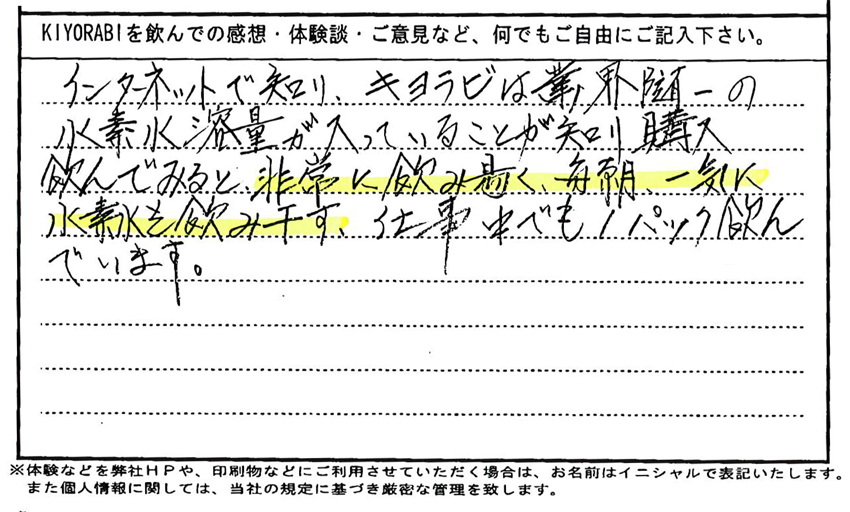 KIYORABIを飲んでの感想・体験談・ご意見など、何でもご自由にご記入下さい。
インターネットで知り、キヨラビは業界随一の
水素水溶量が入っていることが知り購入
飲んでみると、非常に飲み易く、毎朝、一気に
水素水を飲み干す、仕事中でも1パック飲ん
でいます。
※体験などを弊社HPや、印刷物などにご利用させていただく場合は、お名前はイニシャルで表記いたします。
また個人情報に関しては、当社の規定に基づき厳密な管理を致します。